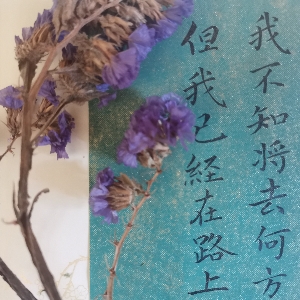 我不知将去何方
但我已经在路上